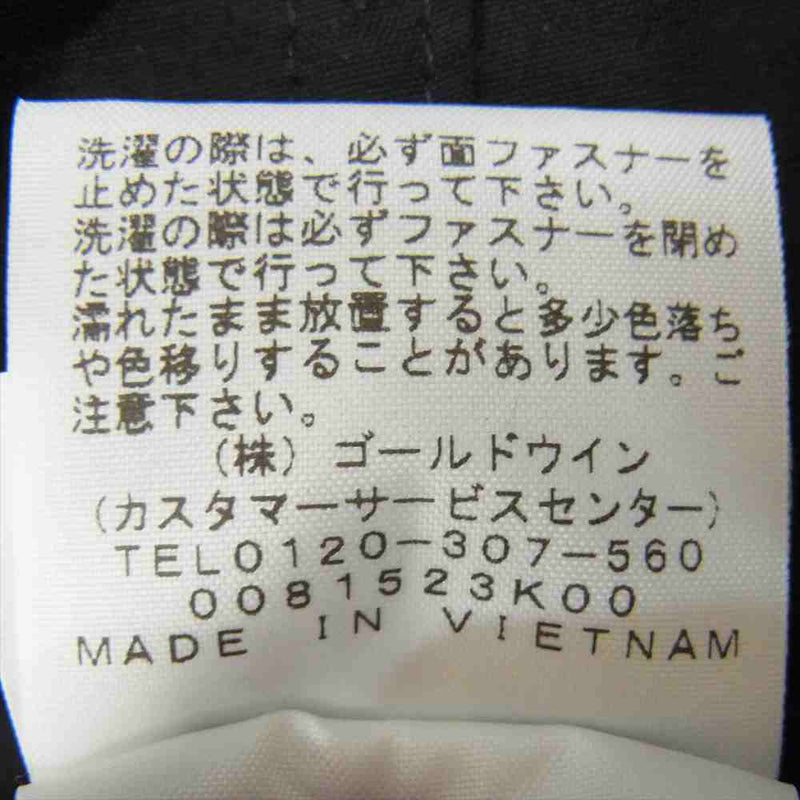 洗濯の際は、必ず面ファスナーを
止めた状態で行って下さい。
洗濯の際は必ずファスナーを閉め
た状態で行って下さい。
濡れたまま放置すると多少色落ち
や色移りすることがあります。ご
注意下さい。
(株)ゴールドウイン
(カスタマーサービスセンター)
TEL0120-307-560
0081523K00
MADE IN VIETNAM